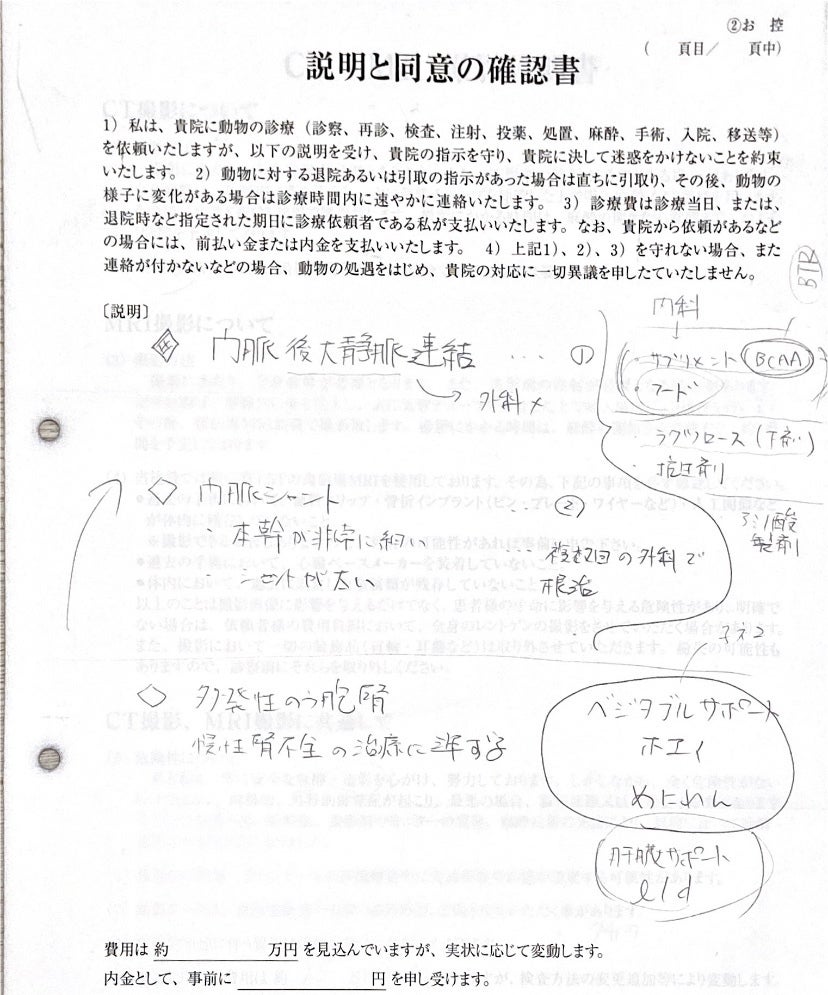 ②お 控
( 頁目／ 頁中)
説明と同意の確認書
1）私は、貴院に動物の診療（診察、再診、検査、注射、投薬、処置、麻酔、手術、入院、移送等）
を依頼いたしますが、以下の説明を受け、貴院の指示を守り、貴院に決して迷惑をかけないことを約束
いたします。 2）動物に対する退院あるいは引取の指示があった場合は直ちに引取り、その後、動物の
様子に変化がある場合は診療時間内に速やかに連絡いたします。 3）診療費は診療当日、または、
退院時など指定された期日に診療依頼者である私が支払いいたします。なお、貴院から依頼があるなど
の場合には、前払い金または内金を支払いいたします。 4）上記1）、2）、3）を守れない場合、また
連絡が付かないなどの場合、動物の処遇をはじめ、貴院の対応に一切異議を申したていたしません。
〔説明〕
内科
門脈後大静脈連結 … ①
→ 外科×
・サプリメント (BCAA)
・フード
・ラクツロース (下剤)
・抗生剤
アミノ酸
製剤
◇ 門脈シャント … ②
・本幹が非常に細い
・シャントが太い
… 複数回の外科で
根治
◇ 多発性のう胞腎
慢性腎不全の治療に準ずる
ベジタブルサポート
ホエイ
めにわん
肝臓サポート
費用は 約 万円を見込んでいますが、実状に応じて変動します。
内金として、事前に 円を申し受けます。